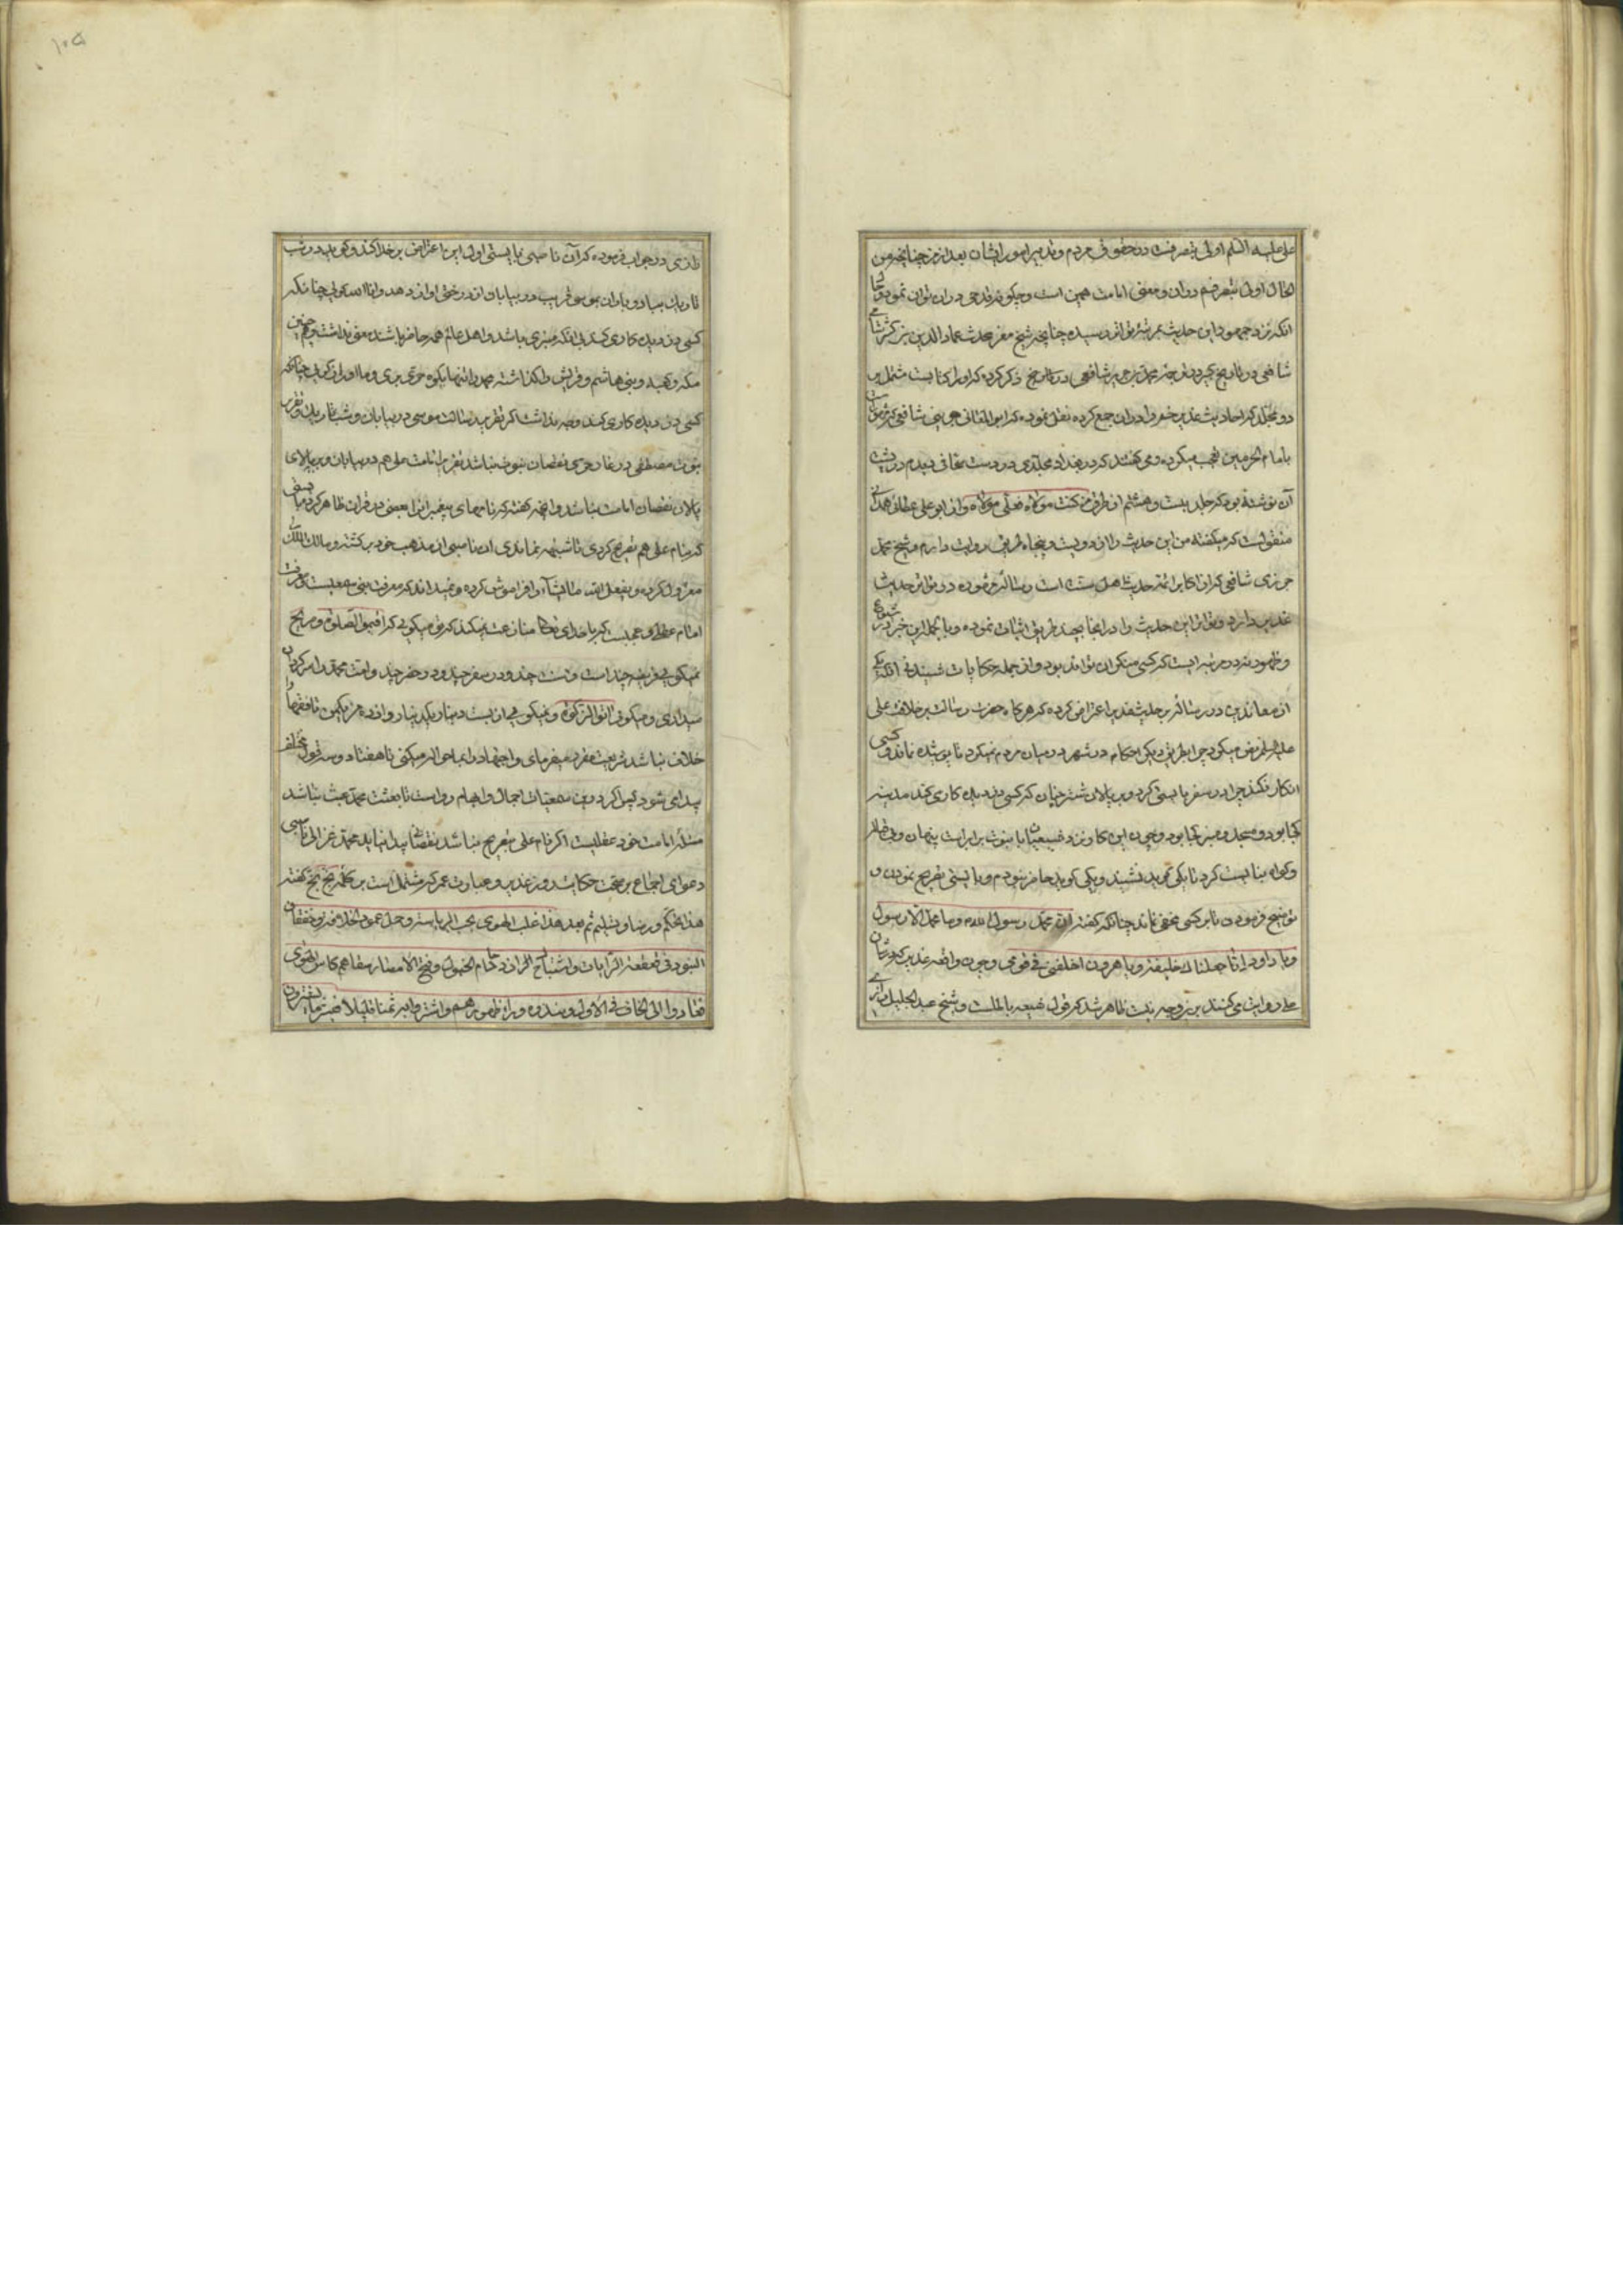 علی علیه السلم اولی بتصرفست در حقوق مردم و تدبیر امور ایشان بعد از من چنانچه من
الحال اولی بتصرفم در ان و معنی امامت همین است و چکونه قدحی در ان توان نمود و حال
انکه نزد جمهور این حدیث بمرتبهٔ تواتر رسیده چنانچه شیخ مفسر محدث عماد الدین بن کثیر شامی
شافعی در تاریخ کبیر در ترجمه محمد بن جریر شافعی در تاریخ ذکر کرده که او را کتابیست مشتمل بر
دو مجلد که احادیث غدیر خم را در ان جمع کرده نقل نموده که ابو المعالی جوینی شافعی که مشهورست
بامام الحرمین تعجب میکرده و می کفتند که در بغداد مجلدی در دست صحافی دیدم در پشت
آن نوشته بود که جلد بیست و هشتم از طرق من کنت مولاه فعلی مولاه و از ابو علی عطار همدانی
منقولست که میکفته من این حدیث را از دویست و پنجاه طریق روایت دارم و شیخ محمد
جرزی شافعی که از اکابر ائمه حدیث اهل سنت است رساله فرموده در تواتر حدیث
غدیر دارد و تواتر این حدیث را در انجا بچند طریق اثبات نموده و بالجمله این خبر در شیوع
و ظهور نه در مرتبه ایست که کسی منکر ان تواند بود و از جمله حکایات شنیدنی انکه یکی
از معاندین در رساله بر حدیث غدیر اعتراض کرده که هرکاه حضرت رسالت بر خلافت علی
علیه السلم نص میکرد چرا بطریق دیکر احکام در شهر در میان مردم نمیکرد تا پوشیده نماند و کسی
انکار نکند چرا در سفر بایستی کرد و بر پالان شتر چنان که کسی دزدیده کاری کند مدینه
کجا بود و مسجد و منبر کجا بود و چون این کار نزد شیعیان با نبوت برابر است پنهان و بی ظاهر
و کواه نبایست کرد تا یکی تمرید نشیند و یکی کوید حاضر نبودم و بایستی تصریح نمودن و
توضیح فرمودن تا بر کسی مخفی نماند چنانکه کفته ان محمد رسول الله و ما محمد الا رسول
و یا داود انا جعلناك خلیفة و یا هرون اخلفنی فی قومی و چون واقعه غدیر که در شان
علی روایت می کنند برین وجه نیست ظاهر شد که قول شیعه باطلست و شیخ عبد الجلیل رازی
رازی در جواب فرموده که آن ناصبی بایستی اول این اعتراض بر خدا کند و کوید در شب
تاریك بباد و باران بموسی قریب در بیابان و از درختی اواز دهد و انا الله کوئی چنانکه
کسی دزدیده کاری کند بی انکه منبری باشد و اهل عالم همه حاضر باشند معنی نداشت و همچنین
مکه و کعبه و بنی هاشم و قریش را بکذاشته محمد را تنها بکوه حری بری و ما اورا کوئی چنانکه
کسی دزدیده کاری کند وجه نداشت اکر تقریر رسالت موسی در بیابان و شب تاریك و تقریر
نبوت مصطفی در غار حری نقصان نبوت نباشد تقریر امامت علی هم در بیابان و بر بالای
پالان نقصان امامت نباشد و انچه کفته که نامهای پیغمبران بعضی در قران ظاهر کرد بایستی
که بنام علی هم تصریح کردی تا شبهه نماندی ان ناصبی از مذهب خود برکشته و مالك الملك
معزول کرده و یفعل الله ما یشآء را فراموش کرده و نمیداند که معرفت نبی سمعیست و معرفت
امام عقلی و عجبست که با خدای تعالی منازعت نمیکند که نمی میکوئی که اقیموا الصلوة و صریح
نمیکوئی فریضه چند است و سنت چند و در سفر چند و در حضر چند و امت محمد را سرکردان
میداری و میکوئی اتوا الزکوة و نمیکوئی از بیست دینار یکدینار و از ده من یکمن تا فقها را
خلاف نباشد شریعت مفرد میفرمای و اجتهاد را بما حواله میکنی تا هفتاد و سه قول مختلف
پیدا می شود پس اکر در سمعیات اجمال و ابهام رواست تا بعثت محمد عبث نباشد
مسئله امامت خود عقلیست اکر نام علی بتصریح نباشد نقصانی پیدا نیاید محمد غزالی ناصبی
دعوای اجماع بر صحت حکایت روز غدیر و عبارت عمر که مشتمل است بر کلمه بخ بخ کفته
هذا تحکیم و رضا و تسلیم ثم بعد هذا غلب الهوی بحب الریاسة و حمل عمود الخلافة و خفقان
البنود فی قعقعة الرایات و اشتباك ازدحام الخیول و فتح الامصار سقاهم کاس الهوی
فعادوا الی الخلاف فی الاول و نبذوه وراء ظهورهم و اشتروا به ثمنا قلیلا فبئس ما یشترون